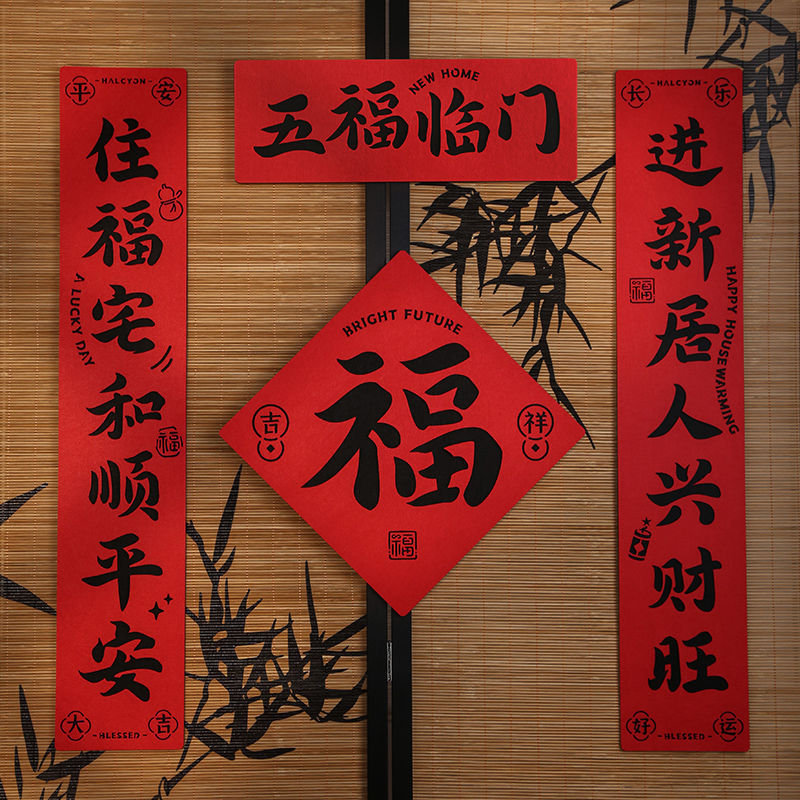 五福临门
NEW HOME
平 HALCYON 安
住福宅和顺平安
A LUCKY DAY
福
大 BLESSED 吉
BRIGHT FUTURE
福
吉
祥
福
长 HALCYON 乐
进新居人兴财旺
HAPPY HOUSE WARMING
福
好 BLESSED 运